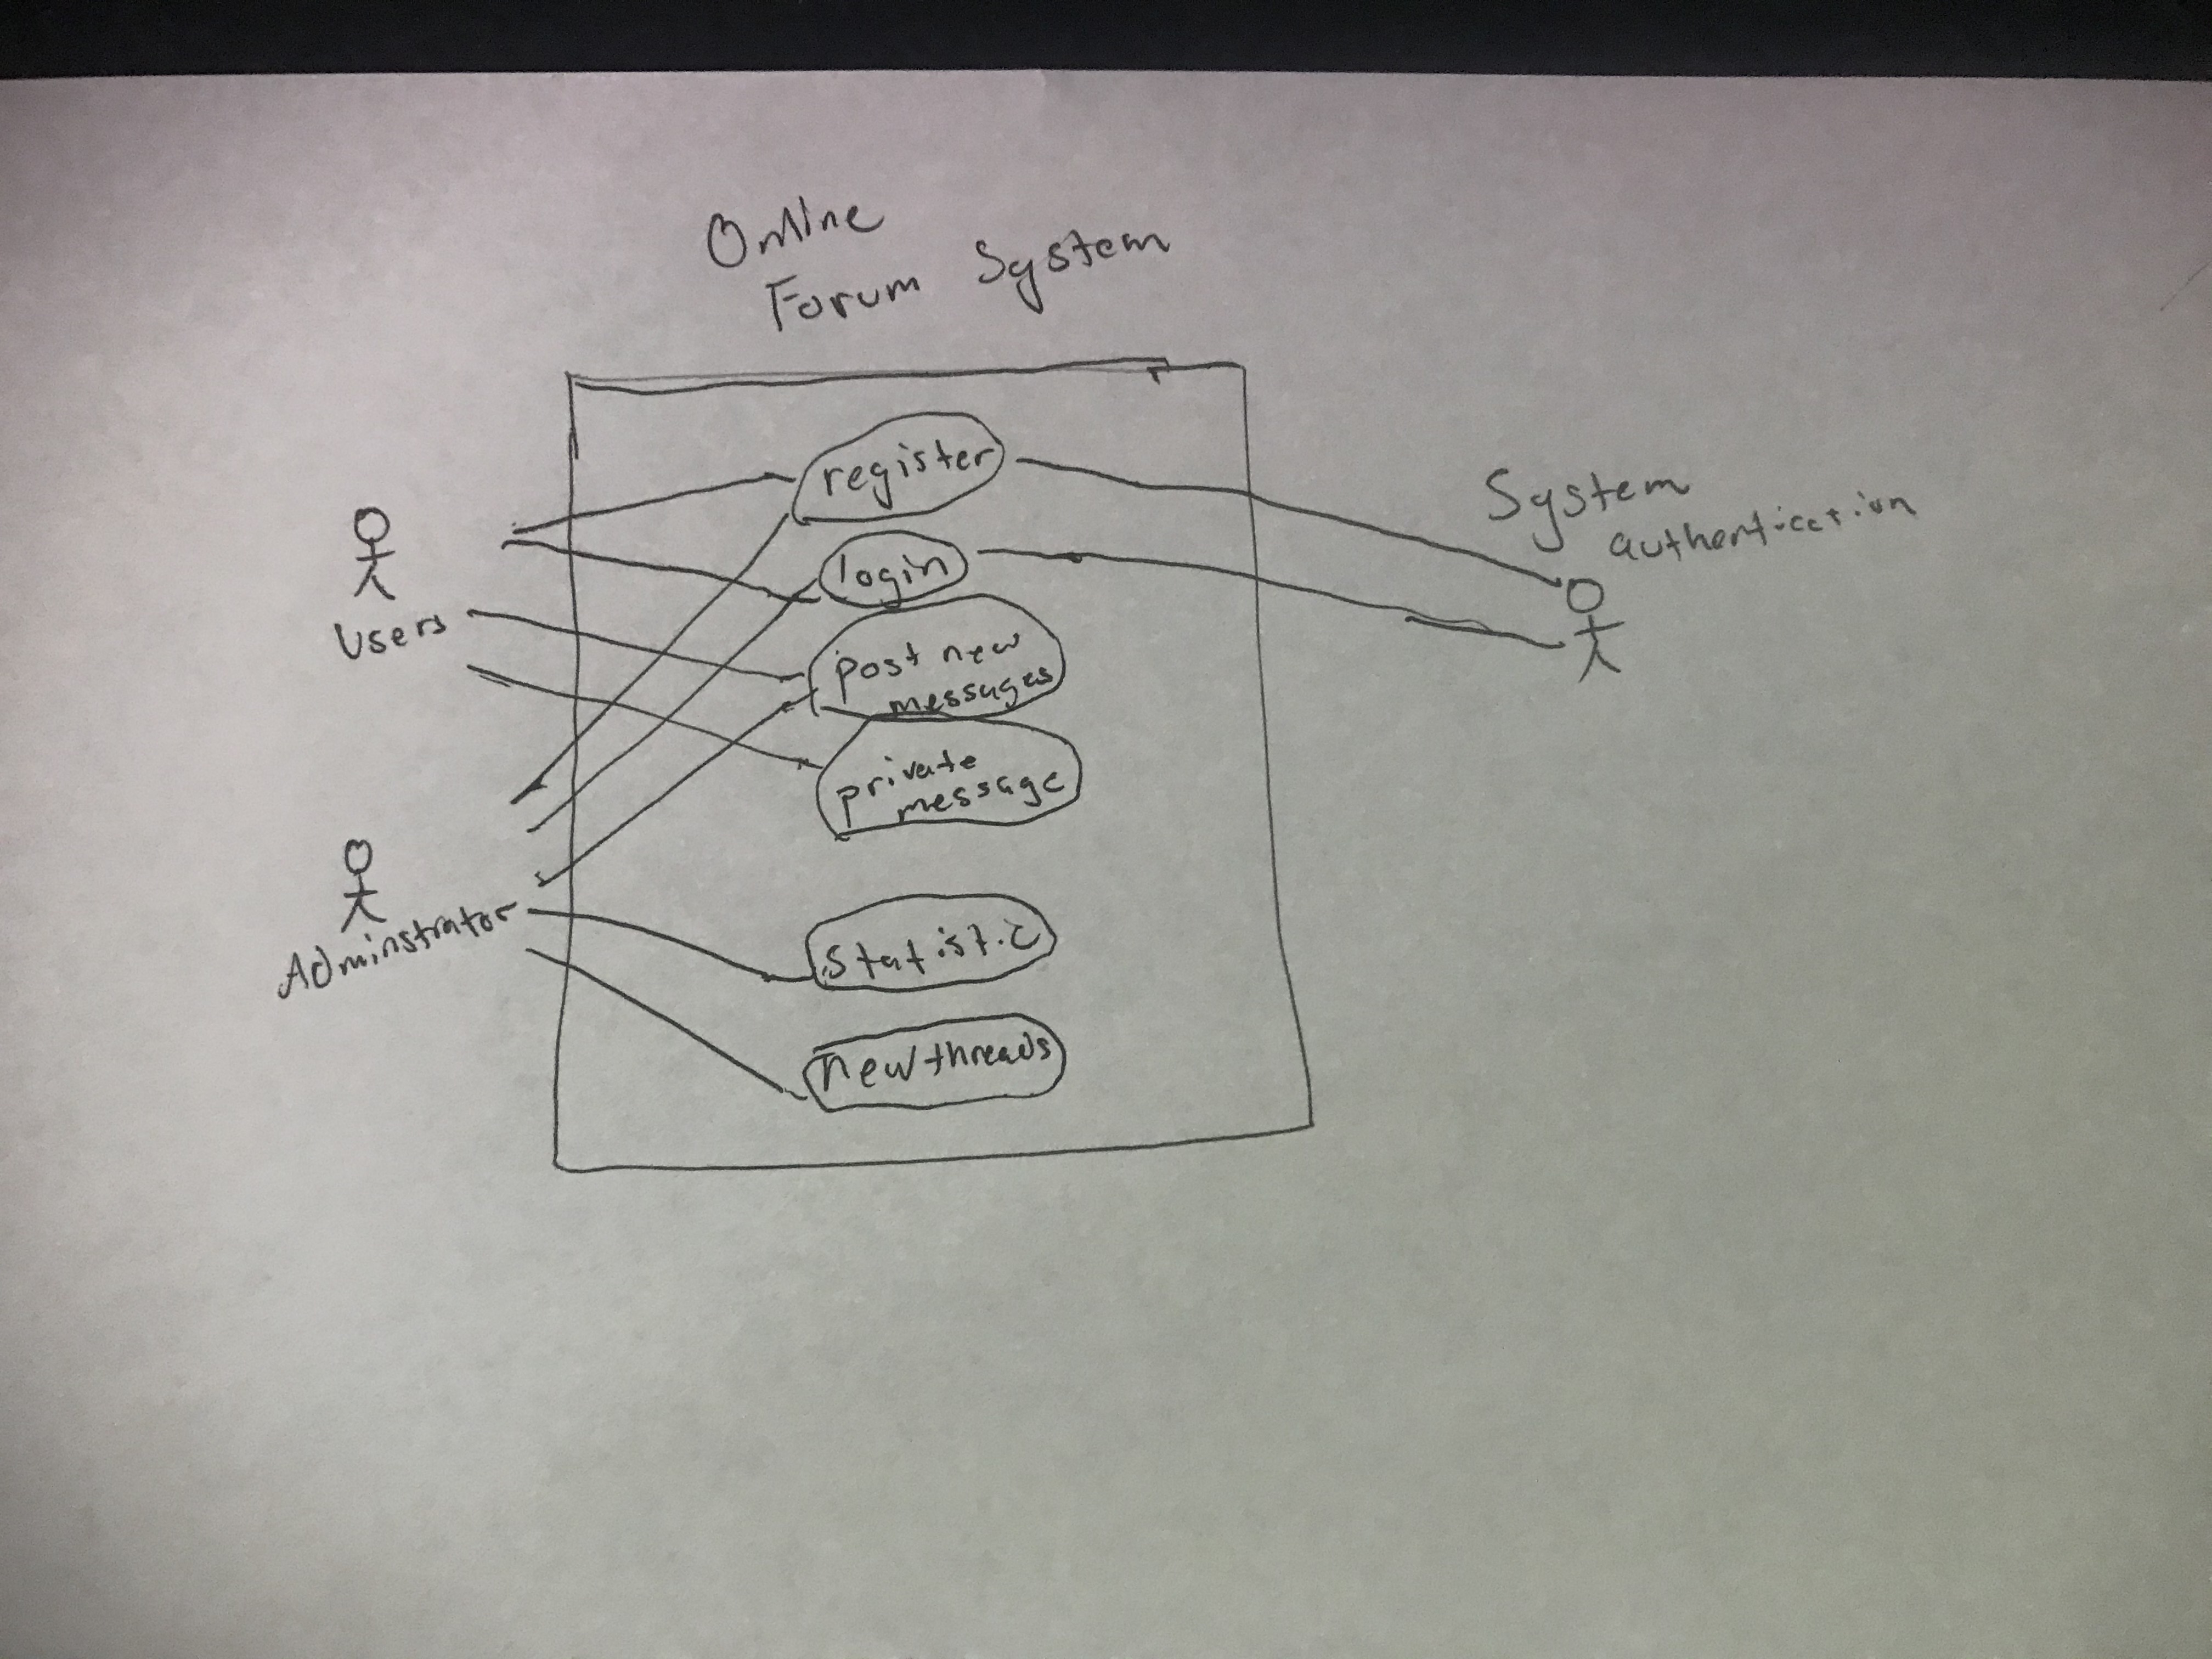 Online
Forum System
Users
Adminstrator
register
login
post new
messages
private
message
Statistic
new threads
System
authentication